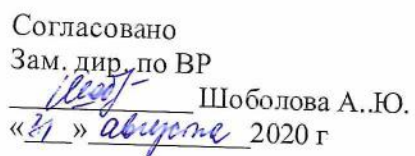 Согласовано
Зам. дир. по ВР
Шоболова А..Ю.
«31» августа 2020 г